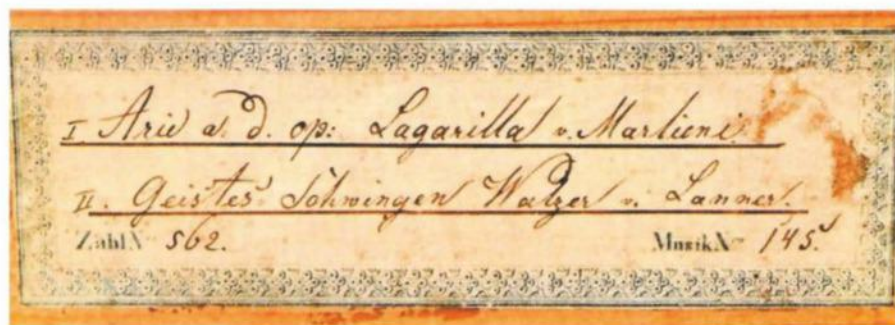 I. Arie a. d. op: Lagarilla v. Marlieni.
II. Geistes Schwingen Walzer v. Lanner.
Zahl No 562. Musik No 145.